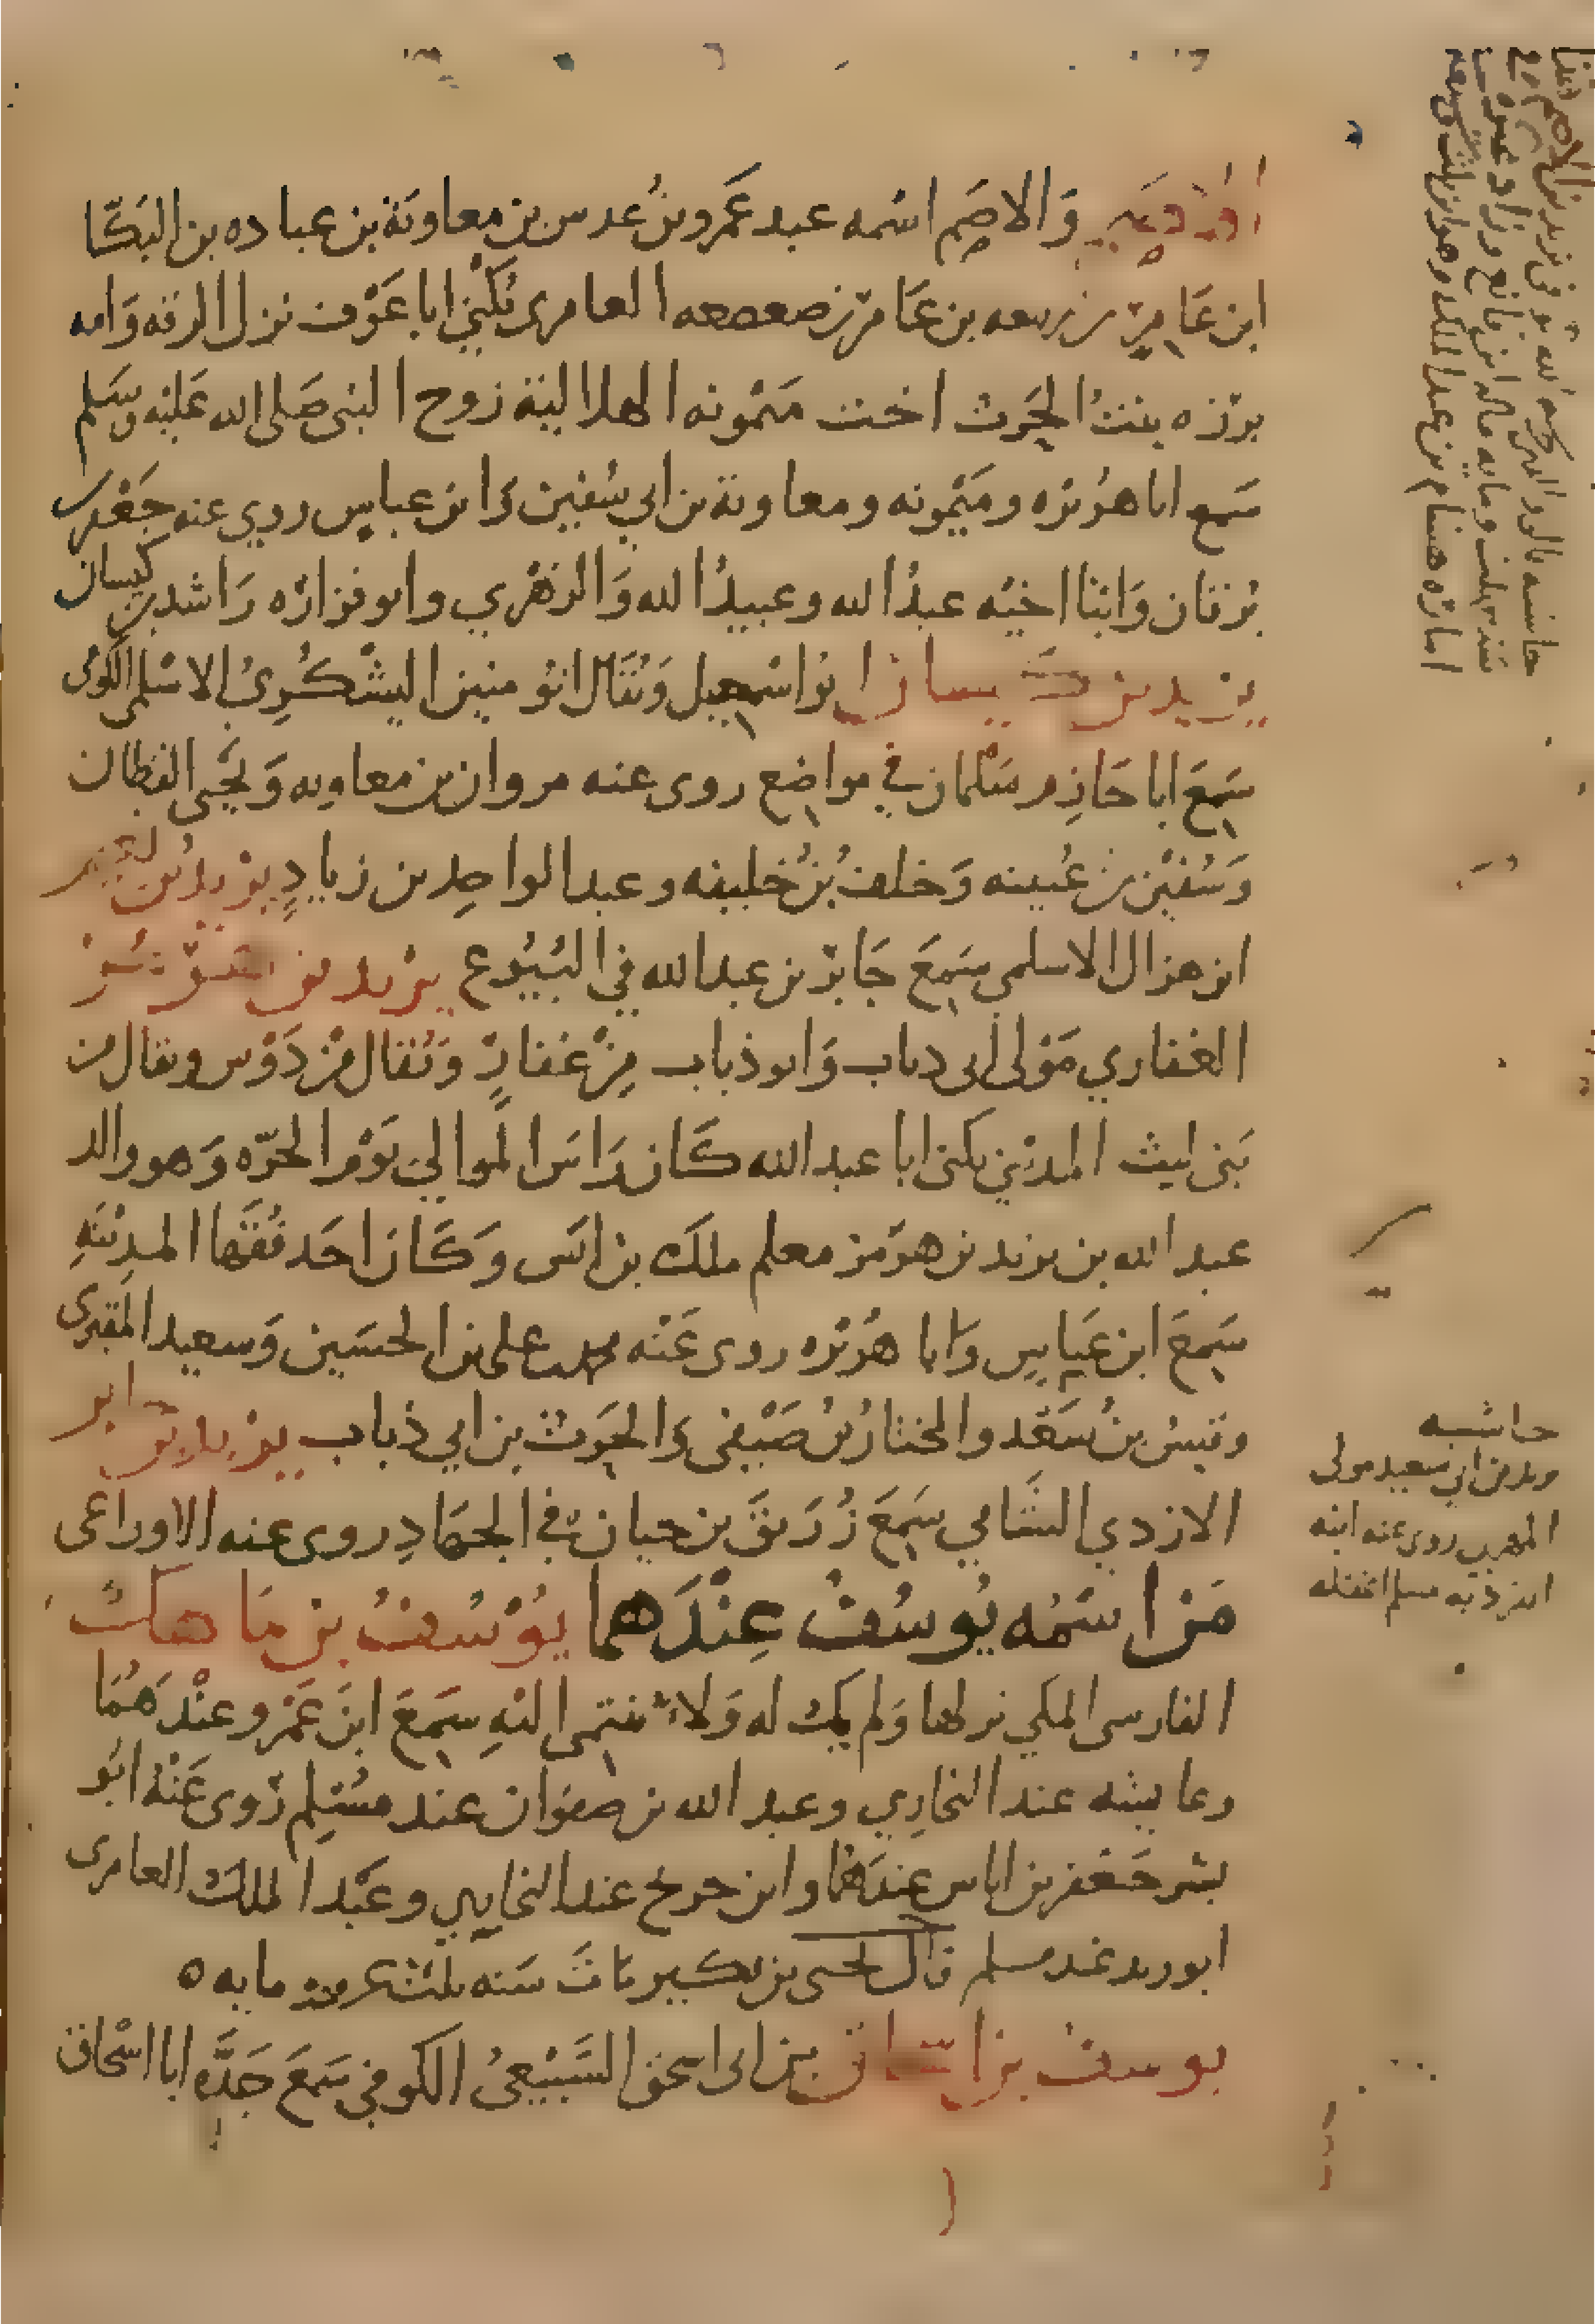 والاصم اسمه عبد عمرو بن عدس بن معاوية بن عباده بن البكا
ابن عامر بن ربيعه بن عامر بن صعصعه العامري يكنى ابا عوف نزل الرقه وامه
برزه بنت الحرث اخت ميمونه الهلالية زوج النبي صلى الله عليه وسلم
سمع ابا هريره وميمونه ومعاوية بن ابي سفين وابن عباس روي عنه جعفر بن
برقان وابنا اخيه عبد الله وعبيد الله والزهري وابو فزاره راشد بن كيسان
يزيد بن كيسان ابو اسمعيل ويقال ابو منين اليشكري الاسلمي الكوفي
سمع ابا حازم سلمان في مواضع روى عنه مروان بن معاويه ويحيى القطان
وسفين بن عيينه وخلف بن خليفه وعبد الواحد بن زياد يزيد بن نعيم
ابن هزال الاسلمي سمع جابر بن عبد الله في البيوع يزيد بن هرمز
الغفاري مولى ابي ذباب وابو ذباب من غفار ويقال من دوس ويقال من
بني ليث المدني يكنى ابا عبد الله كان راس الموالي يوم الحره وهو والد
عبد الله بن يزيد بن هرمز معلم ملك بن انس وكان احد فقها المدينه
سمع ابن عباس وابا هريره روى عنه محمد بن علي بن الحسين وسعيد المقبري
وقيس بن سعد والمختار بن صيفي والحرث بن ابي ذباب يزيد بن جابر
الازدي الشامي سمع زريق بن حيان في الجهاد روى عنه الاوزاعي
من اسمه يوسف عندهما يوسف بن ماهك
الفارسي المكي نزلها ولم يك له ولاء ينتمي اليه سمع ابن عمرو عندهما
وعايشه عند البخاري وعبد الله بن صفوان عند مسلم روى عنه ابو
بشر جعفر بن اياس عندهما وابن جريج عند البخاري وعبد الملك العامري
ابو زيد عند مسلم قال يحيى بن بكير مات سنه ثلث عشره ومايه ٥
يوسف بن اسحاق بن ابي اسحق السبيعي الكوفي سمع جده ابا اسحاق
حاشيه
يزيد بن ابي سعيد مولى
المهري روى عنه ابنه